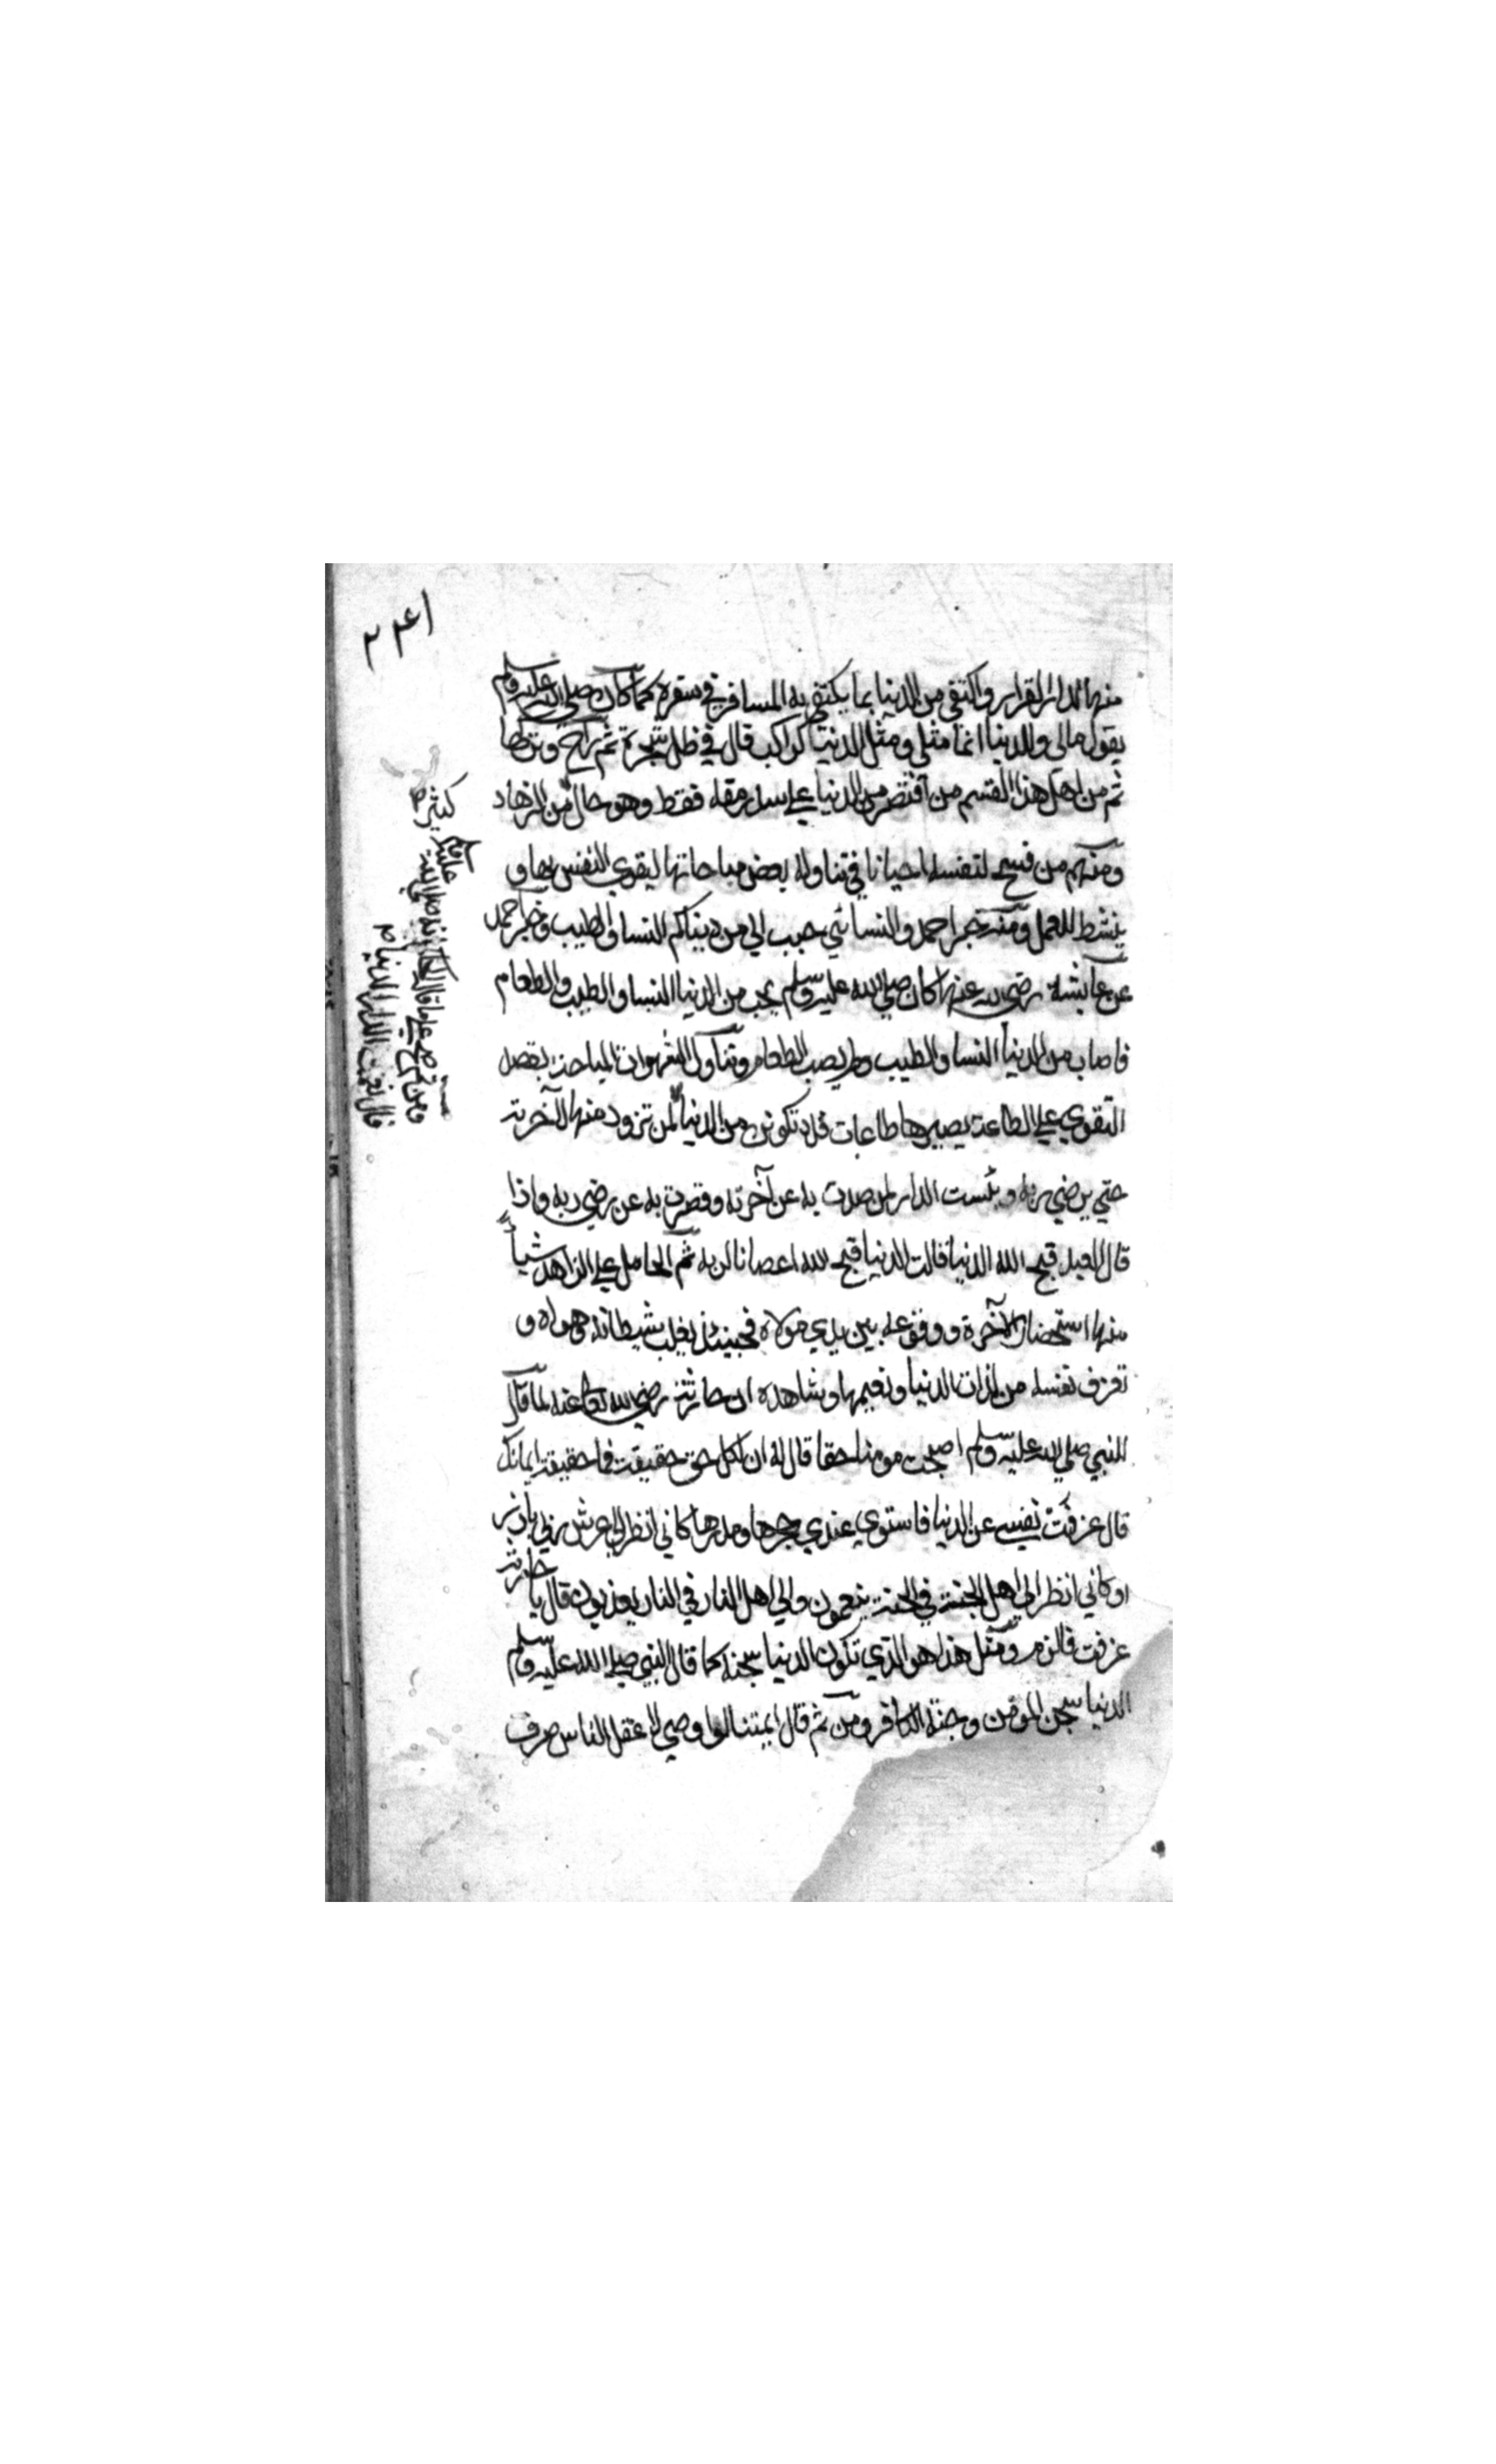 ٢٤١
منها لدار القرار واكتفي من الدنيا بما يكتفي به المسافر في سفره كما كان صلي الله عليه وسلم
يقول مالي وللدنيا انما مثلي ومثل الدنيا كراكب قال في ظل شجرة ثم راح وتركها
ثم من اهل هذا القسم من اقتصر من الدنيا علي سد رمقه فقط وهو حال من الزهاد
ومنهم من فسح لنفسه احيانا في تناوله بعض مباحاتها ليقوي النفس بها و
ينشط للعمل ومنه خبر احمد والنسائي حبب الي من دنياكم النسا والطيب وخبر احمد
عن عايشة رضي الله عنها كان صلي الله عليه وسلم يحب من الدنيا النسا والطيب والطعام
فاصاب من الدنيا النسا والطيب ولم يصب الطعام وتناول الشهوات المباحة بقصد
التقوي علي الطاعة يصيرها طاعات فلا تكون من الدنيا لمن تزود منها لآخرته
حتي يرضي ربه وبئست الدار لمن صدت به عن آخرته وقصرت به عن رضي ربه واذا
قال العبد قبح الله الدنيا قالت الدنيا قبح الله اعصانا لربه ثم الحامل علي الزاهد شياً
منها استحضار الآخرة ووقوعه بين يدي مولاه فحينئذ يغلب شيطانه وهواه و
تعزف نفسه من لذات الدنيا ونعيمها وشاهده ان حارثة رضي الله تعا عنه لما قال
للنبي صلي الله عليه وسلم اصبحت مومنا حقا قال له ان لكل حق حقيقة فما حقيقة ايمانك
قال عزفت نفسي عن الدنيا فاستوي عندي حجرها ومدرها كاني انظر الي عرش ربي بارز
او كاني انظر الي اهل الجنة في الجنة ينعمون والي اهل النار في النار يعذبون قال يا حارثة
عرفت فالزم ومثل هذا هو الذي تكون الدنيا سجنه كما قال النبي صلي الله عليه وسلم
الدنيا سجن المومن وجنة الكافر ومن ثم قال ايمتنا لو اوصي لاعقل الناس صرف
كثيرة
ومن ثم صح علي ما قال الحاكم انه صلي الله عليه وسلم
قال نعمت الدار الدنيا